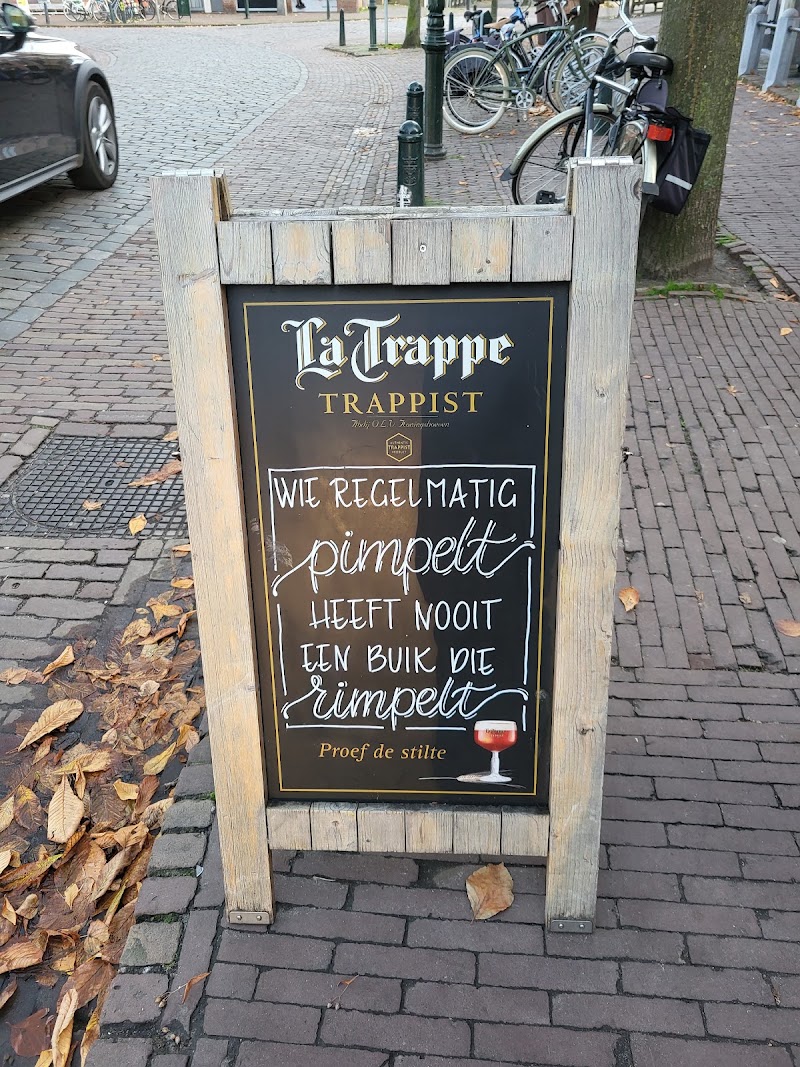 La Trappe
TRAPPIST
Abdij O.L.V. Koningshoeven
AUTHENTIC
TRAPPIST
PRODUCT
WIE REGELMATIG
pimpelt
HEEFT NOOIT
EEN BUIK DIE
rimpelt
Proef de stilte